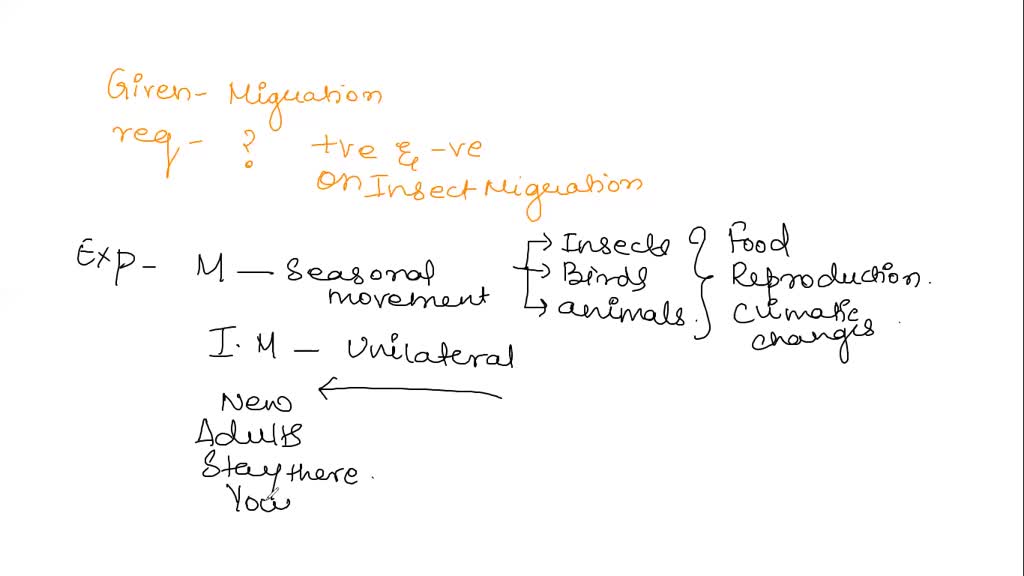 Given- Miguation
req- ? +ve & -ve
on Insect Miguation
Exp- M — Seasonal movement
Insects
Birds
animals.
Food
Reproduction.
Climatic changes
I. M — Unilateral
New
Adults
Stay there.
You